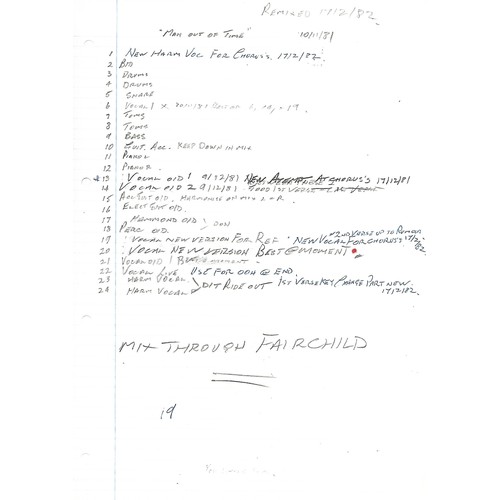 REMIXED 17/2/82
"MAN OUT OF TIME" 10/11/81
1 NEW HARM VOC FOR CHORUS'S. 17/2/82
2 B/D
3 DRUMS
4 DRUMS
5 SNARE
6 VOCAL 1 19
7 TOMS
8 TOMS
9 BASS
10 GUIT. ACC. KEEP DOWN IN MIX
11 PIANO L
12 PIANO R
13 VOCAL O/D 1 9/12/81 NEW CHORUS'S 17/12/81
14 VOCAL O/D 2 9/12/81 GOOD 1ST VERSE
15 ACC GUIT O/D.
16 ELECT GUIT O/D
17 HAMMOND O/D
18 PERC O/D
19 VOCAL NEW VERSION FOR REF. NEW VOCAL FOR CHORUS'S 17/2/82
2ND VERSE UP TO
20 VOCAL NEW VERSION BEST @ MOMENT
21 VOCAL O/D 1 MOMENT
22 VOCAL LIVE USE FOR OOH @ END.
23 HARM VOCAL
24 HARM VOCAL DIT RIDE OUT 1ST VERSE KEY CHANGE PART NEW 17/2/82
MIX THROUGH FAIRCHILD
19